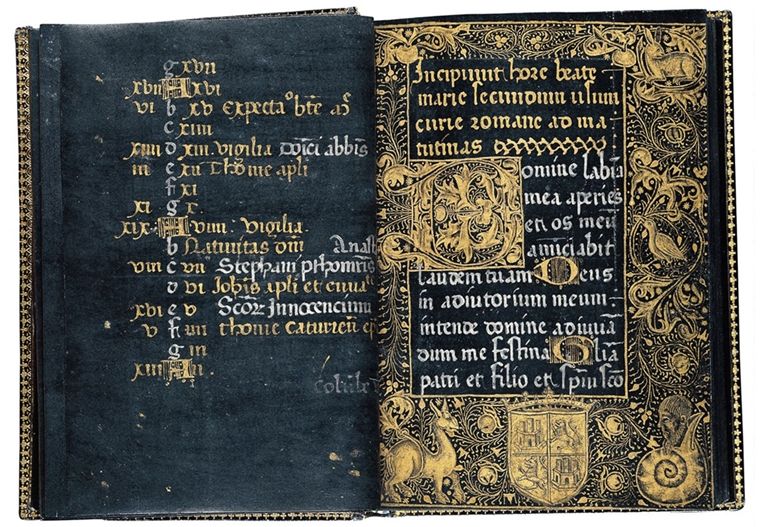 g xvii
xvii A xvi
vi b xv Expectaº bt̄e
c xiiii
xiii d xiii vigilia Dn̄ici abbis̄
iii e xii Thome apli
f xi
xi g x
xix A viiii vigilia
b Nativitas dn̄i
viii c vii Stephani
d vi Ioh̄is apli et
xvi e v Scōr Innocencium
v f iiii Thome
g iii
xiii A ii
Incipiunt hore beate
marie secundum usum
curie romane ad ma
tutinas
Domine labia
mea aperies
et os meū
anūciabit
laudem tuam Deus
in adiutorium meum
intende domine adiuuā
dum me festina Glīa
patri et filio et sp̄ui scō